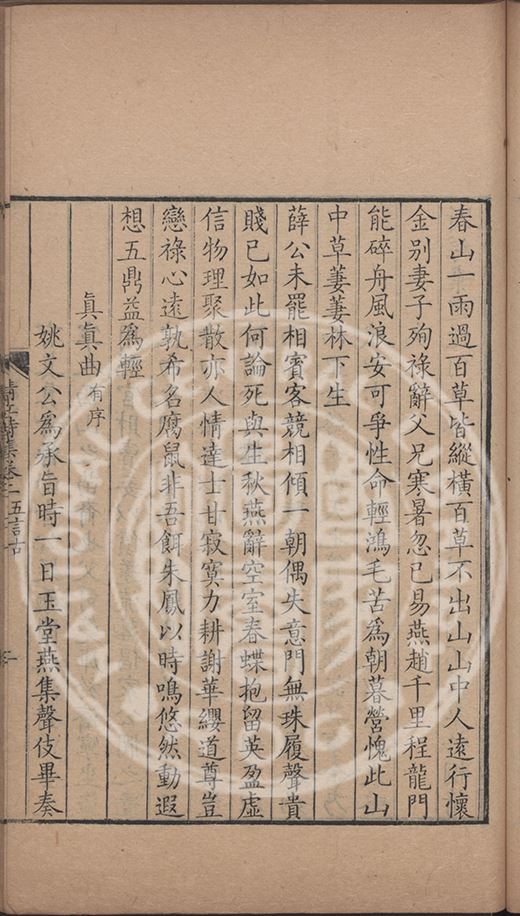 春山一雨過百草皆縱橫百草不出山山中人遠行懷
金別妻子殉祿辭父兄寒暑忽已易燕趙千里程龍門
能碎舟風浪安可爭性命輕鴻毛苦爲朝暮營愧此山
中草萋萋林下生
薛公未罷相賓客競相傾一朝偶失意門無珠履聲貴
賤已如此何論死與生秋燕辭空室春蝶抱留英盈虛
信物理聚散亦人情達士甘寂寞力耕謝華纓道尊豈
戀祿心遠孰希名腐鼠非吾餌朱鳳以時鳴悠然動遐
想五鼎益爲輕
眞眞曲有序
姚文公爲承旨時一日玉堂燕集聲伎畢奏
青丘詩集卷一五言古